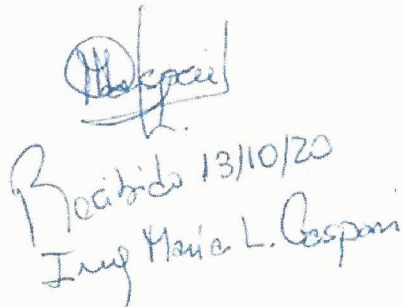 Recibido 13/10/20
Ing María L. Gaspari